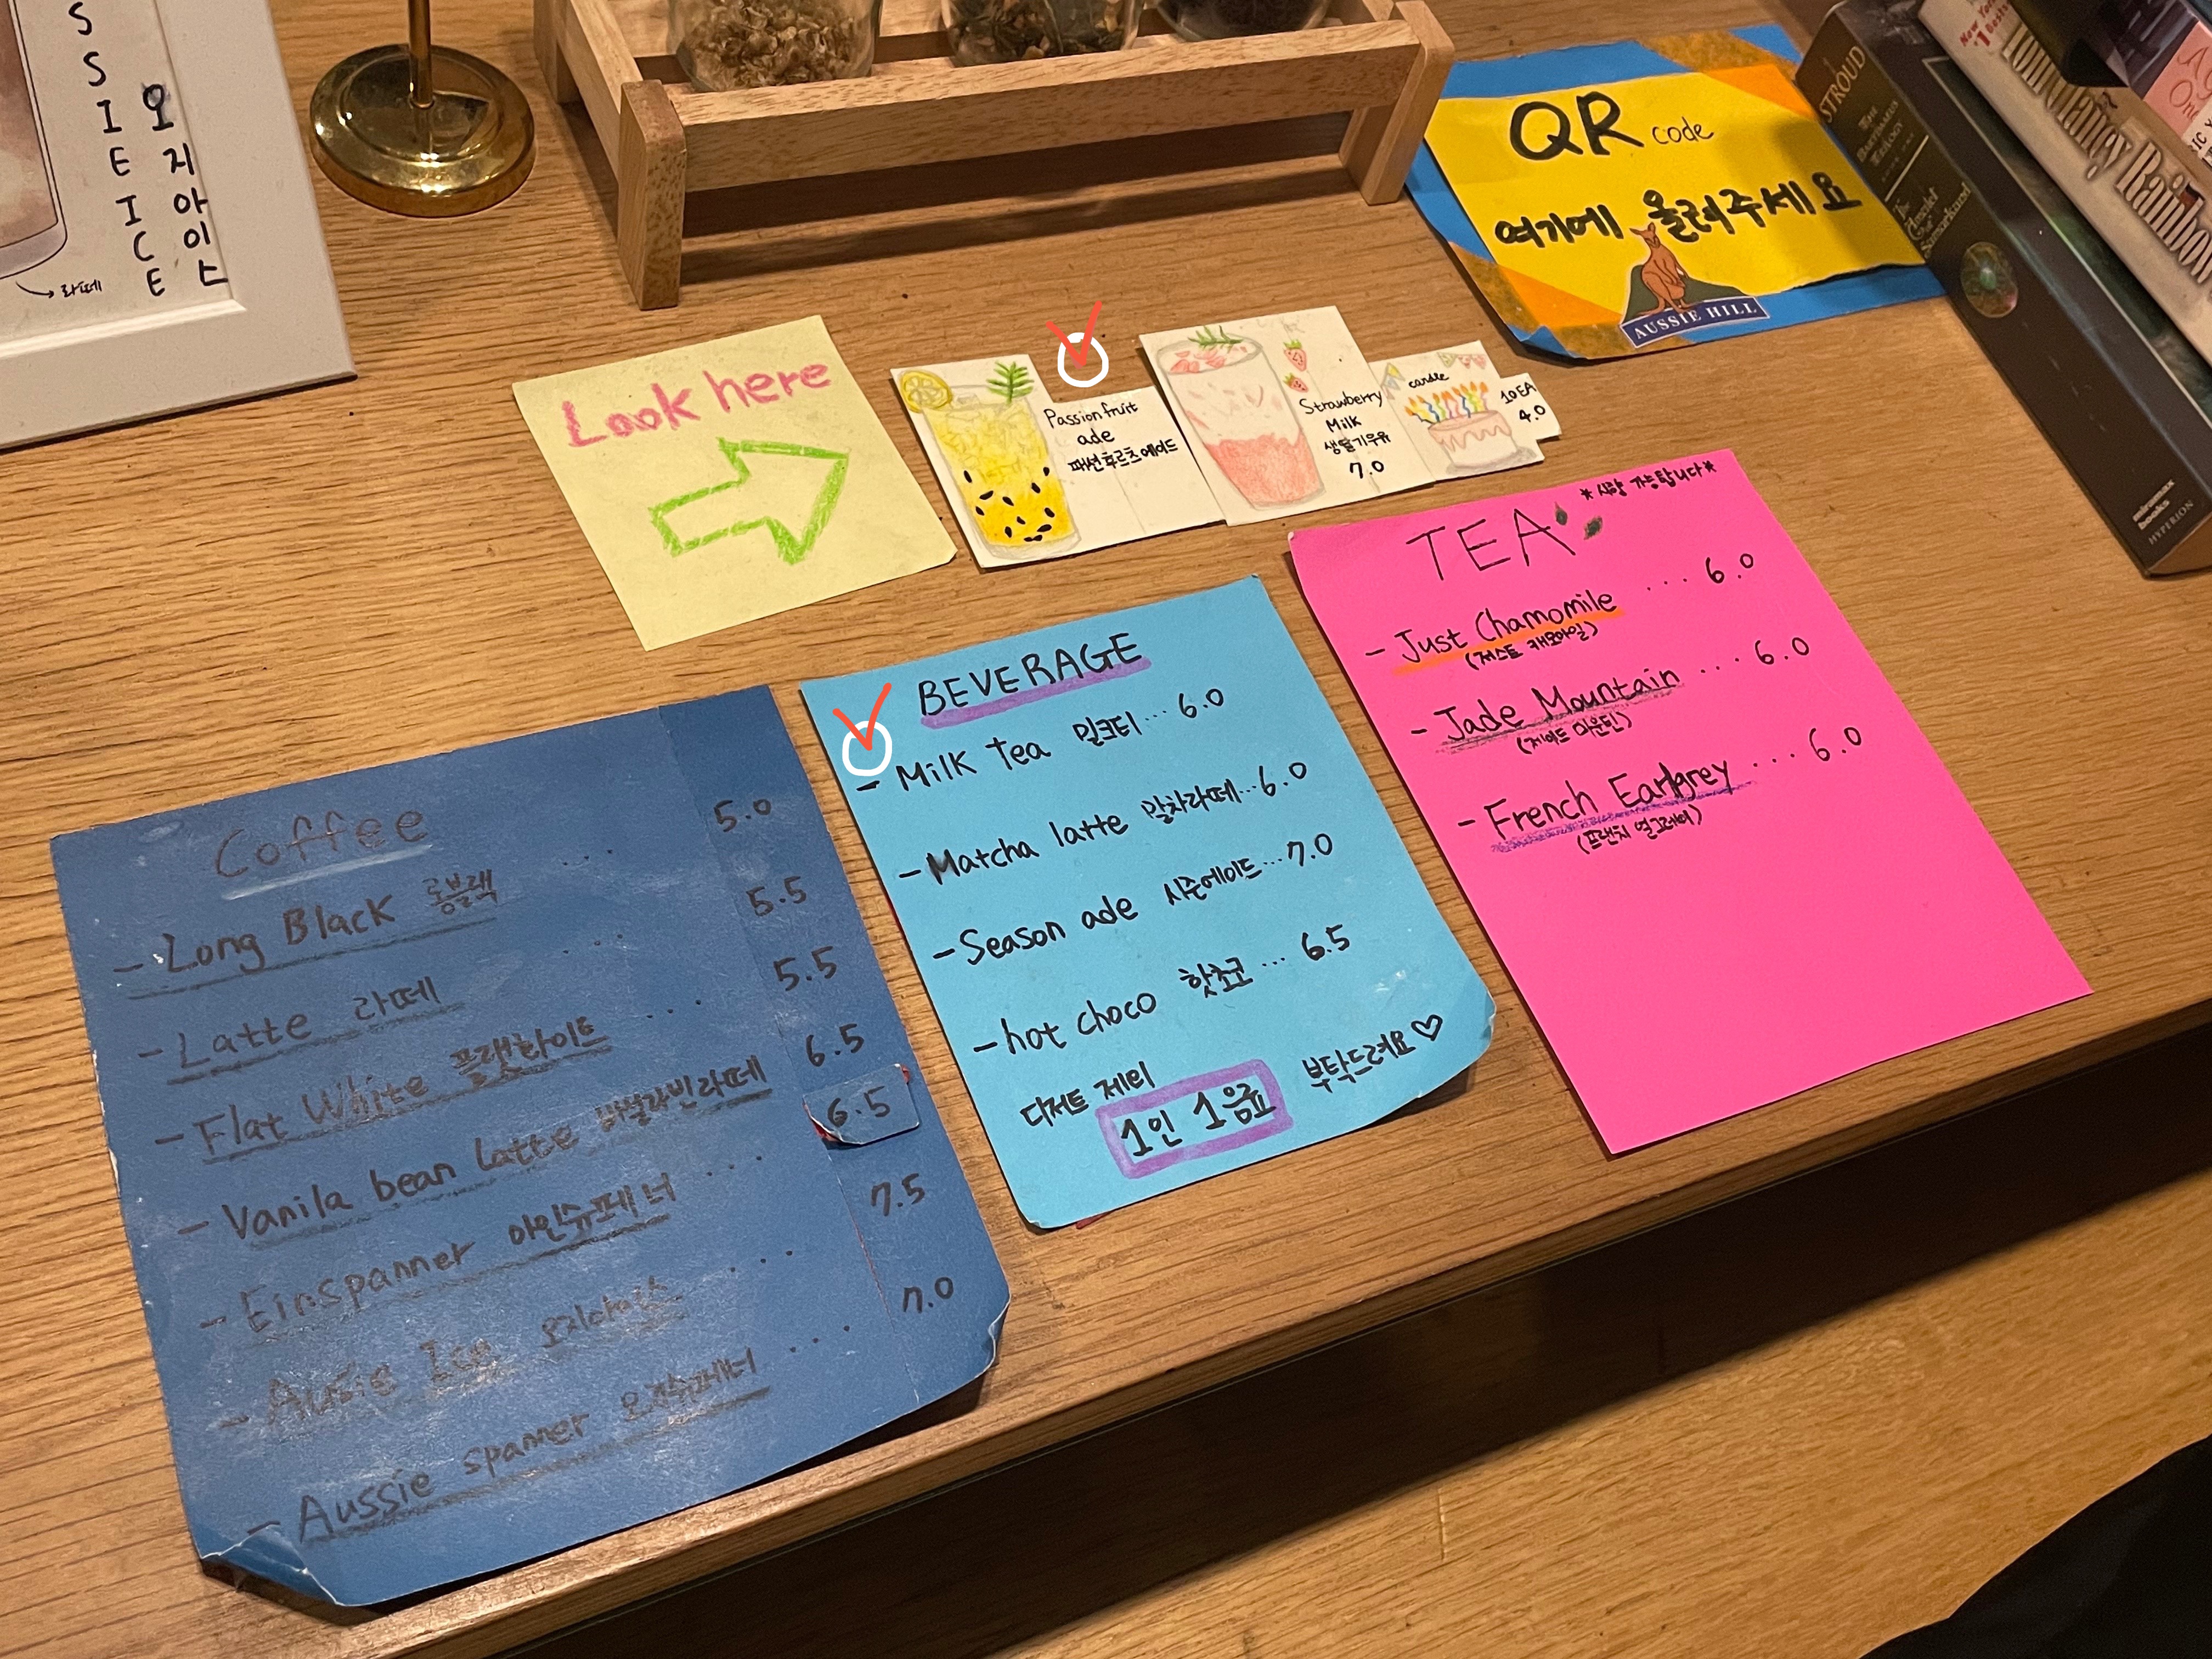 SSIE ICE
오지아이스
라떼
QR code
여기에 올려주세요
AUSSIE HILL
STROUD
THE BARTIMAEUS TRILOGY
The Amulet of Samarkand
miramax books
HYPERION
New York
#1 Bests
Tom Clancy
Rainbow
Look here
Passion fruit
ade
패션후르츠에이드
Strawberry
Milk
생딸기우유
7.0
candle
10EA
4.0
Coffee
- Long Black 롱블랙 .... 5.0
- Latte 라떼 .... 5.5
- Flat White 플랫화이트 ... 5.5
- Vanila bean latte 바닐라빈라떼 6.5
- Einspanner 아인슈페너 .... 6.5
- Aussie Ice 오지아이스 ... 7.5
- Aussie spanner 오지슈페너 ... 7.0
BEVERAGE
- Milk tea 밀크티... 6.0
- Matcha latte 말차라떼...6.0
- Season ade 시즌에이드...7.0
- hot choco 핫초코 ... 6.5
디저트 제외
1인 1음료 부탁드려요♡
*시향 가능합니다*
TEA
- Just Chamomile ... 6.0
(저스트 캐모마일)
- Jade Mountain ... 6.0
(제이드 마운틴)
- French Earlgrey ... 6.0
(프렌치 얼그레이)